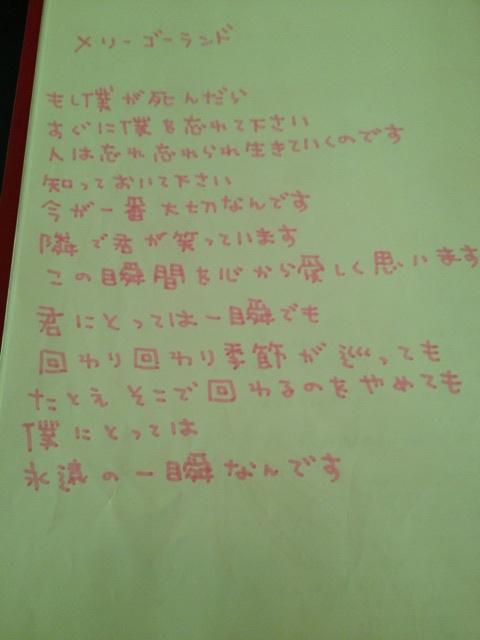 メリーゴーランド
もし僕が死んだら
すぐに僕を忘れて下さい
人は忘れ忘れられ生きていくのです
知っておいて下さい
今が一番大切なんです
隣で君が笑っています
この瞬間を心から愛しく思います
君にとっては一瞬でも
回わり回わり季節が巡っても
たとえそこで回わるのをやめても
僕にとっては
永遠の一瞬なんです